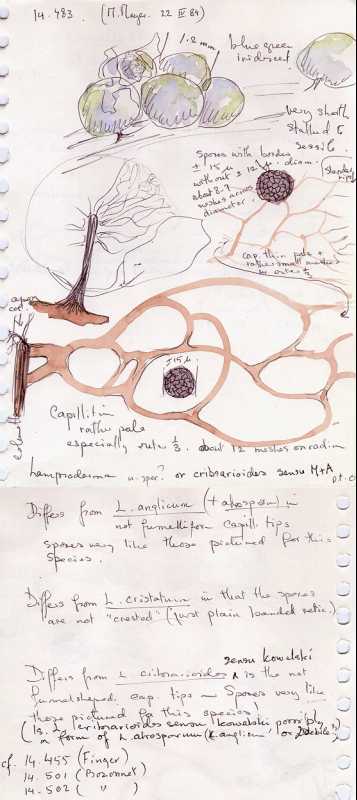 14.483 (M. Meyer. 22 IV 84)
1.2 mm
blue green
iridescent
very short
stalked &
sessile.
spores with border
± 15 µ
without ± 12 µ diam.
about 8-9
meshes across
diameter.
slender
tips
cap. thin pale +
rather small meshes
in outer 1/3
apex
col.
±15 µ.
columella
Capillitium
rather pale
especially outer 1/3. about 12 meshes on radius
Lamproderma n. spec.? or cribrarioides sensu M+A
p.t.o
Differs from L. anglicum (+ atrosporum) in
not funnelliform capill. tips
spores very like those pictured for this
species.
Differs from L. cristatum in that the spores
are not "crested" (just plain banded retic.)
sensu Kowalski
Differs from L. cribrarioides in the not
funnelshaped cap. tips — Spores very like
those pictured for this species!
(Is L. cribrarioides sensu Kowalski possibly
a form of L. atrosporum (L. anglicum) or debile?)
cf. 14.455 (Finger)
14.501 (Bozonnet)
14.502 ( " )